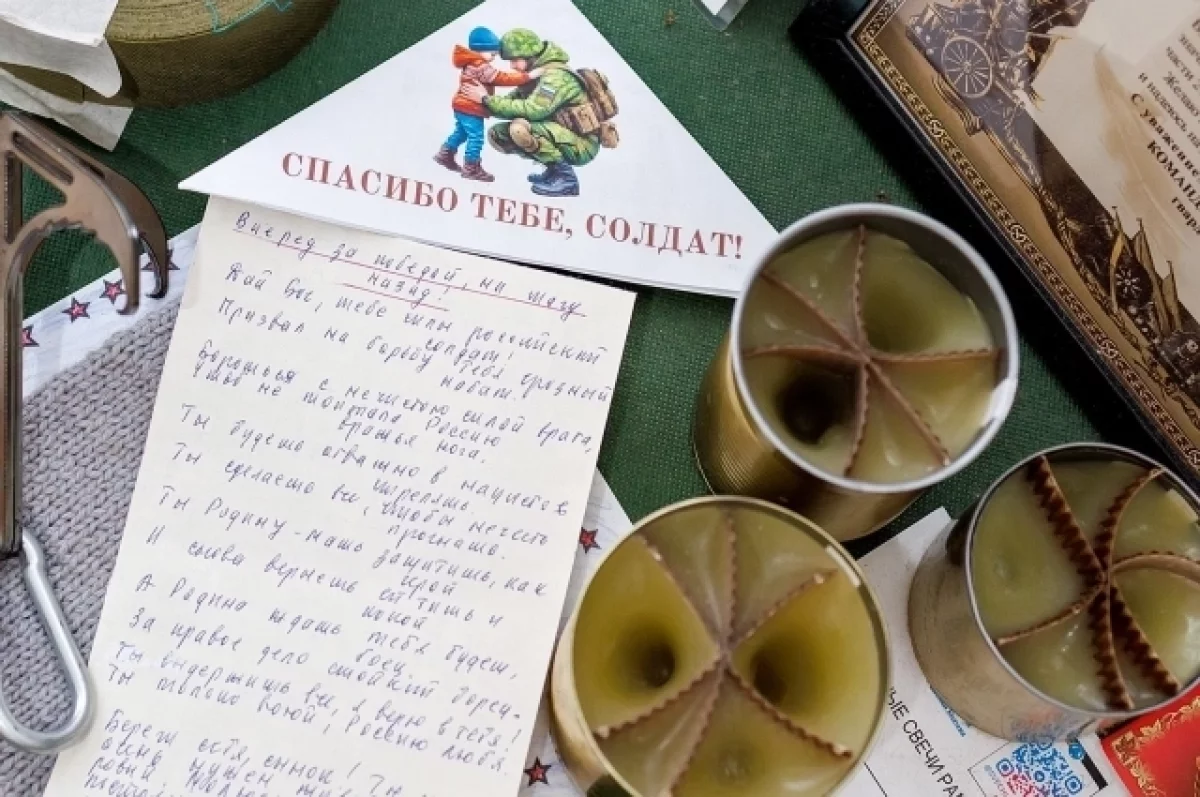 СПАСИБО ТЕБЕ, СОЛДАТ!
Вперед за победой, ни шагу
назад!
Дай Бог, тебе силы российский
солдат!
Призвал на борьбу тебя грозный
набат.
Бороться с нечистою силой врага,
чтоб не топтала Россию
вражья нога.
Ты будешь отважно в нацистов
стрелять.
Ты сделаешь все, чтобы нечисть
прогнать.
Ты Родину-мать защитишь, как
герой
И снова вернешь ей тишь и
покой
А Родина ждать тебя будет,
боец
За правое дело стойкий борец.
Ты выдержишь все, я верю в тебя!
Ты только воюй, Россию любя.
Береги себя, сынок! Ты
нужен
части
Желаю
и надеюсь на
С уважением
КОМАНД
гвард
ЫЕ СВЕЧИ РА